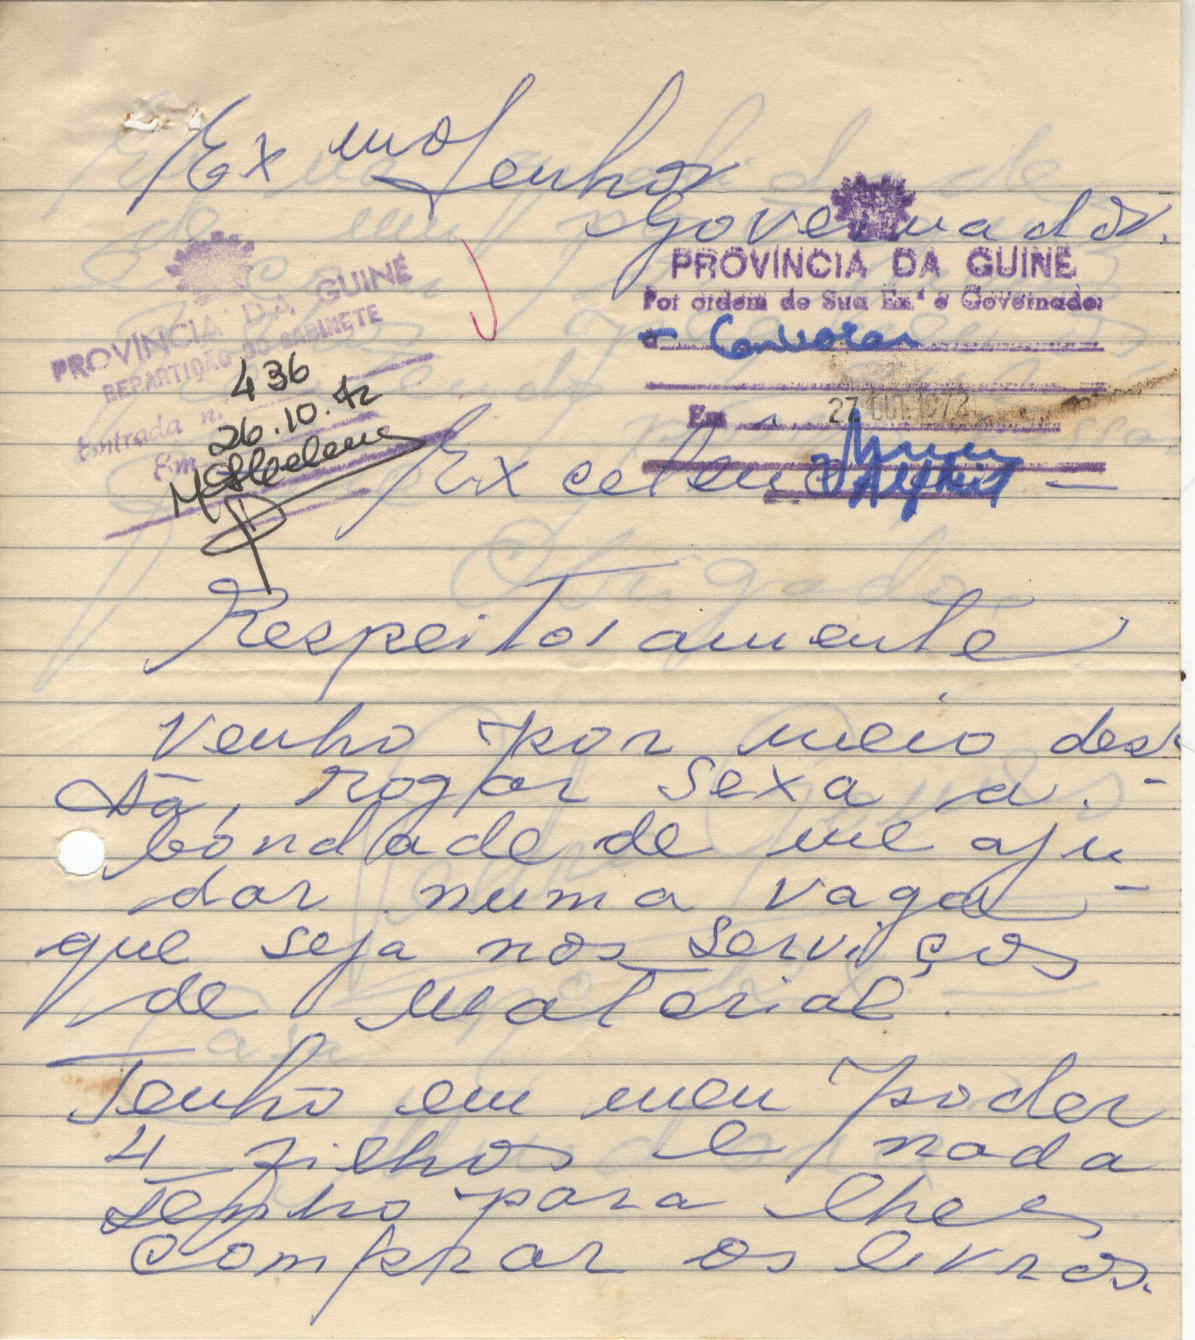 Exmo Senhor
Governador.
PROVÍNCIA DA GUINÉ
REPARTIÇÃO DO GABINETE
Entrada n. 436
Em 26.10.72
PROVÍNCIA DA GUINÉ
Por ordem de Sua Ex.ª o Governador
Em 27 OUT. 1972
Excelen
Respeitosamente
Venho por meio des
ta, rogar Sexa a.-
bondade de me aju
dar numa vaga -
que seja nos serviços
de Material.
Tenho em meu poder
4 filhos e nada
tenho para lhes
comprar os livros.